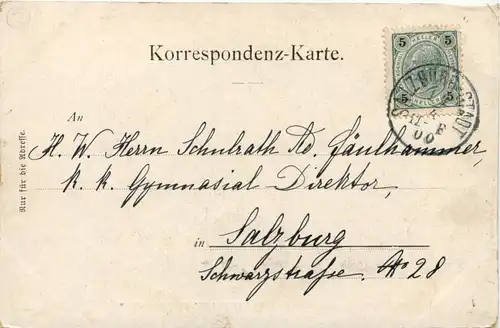 Korrespondenz-Karte.
5 HELLER 5
5 5
SALZBURG-STADT
00
Nur für die Adresse.
An
H. W. Herrn Schulrath Ad. Fäulhammer,
k. k. Gymnasial Direktor,
in Salzburg
Schwarzstraße. No 28